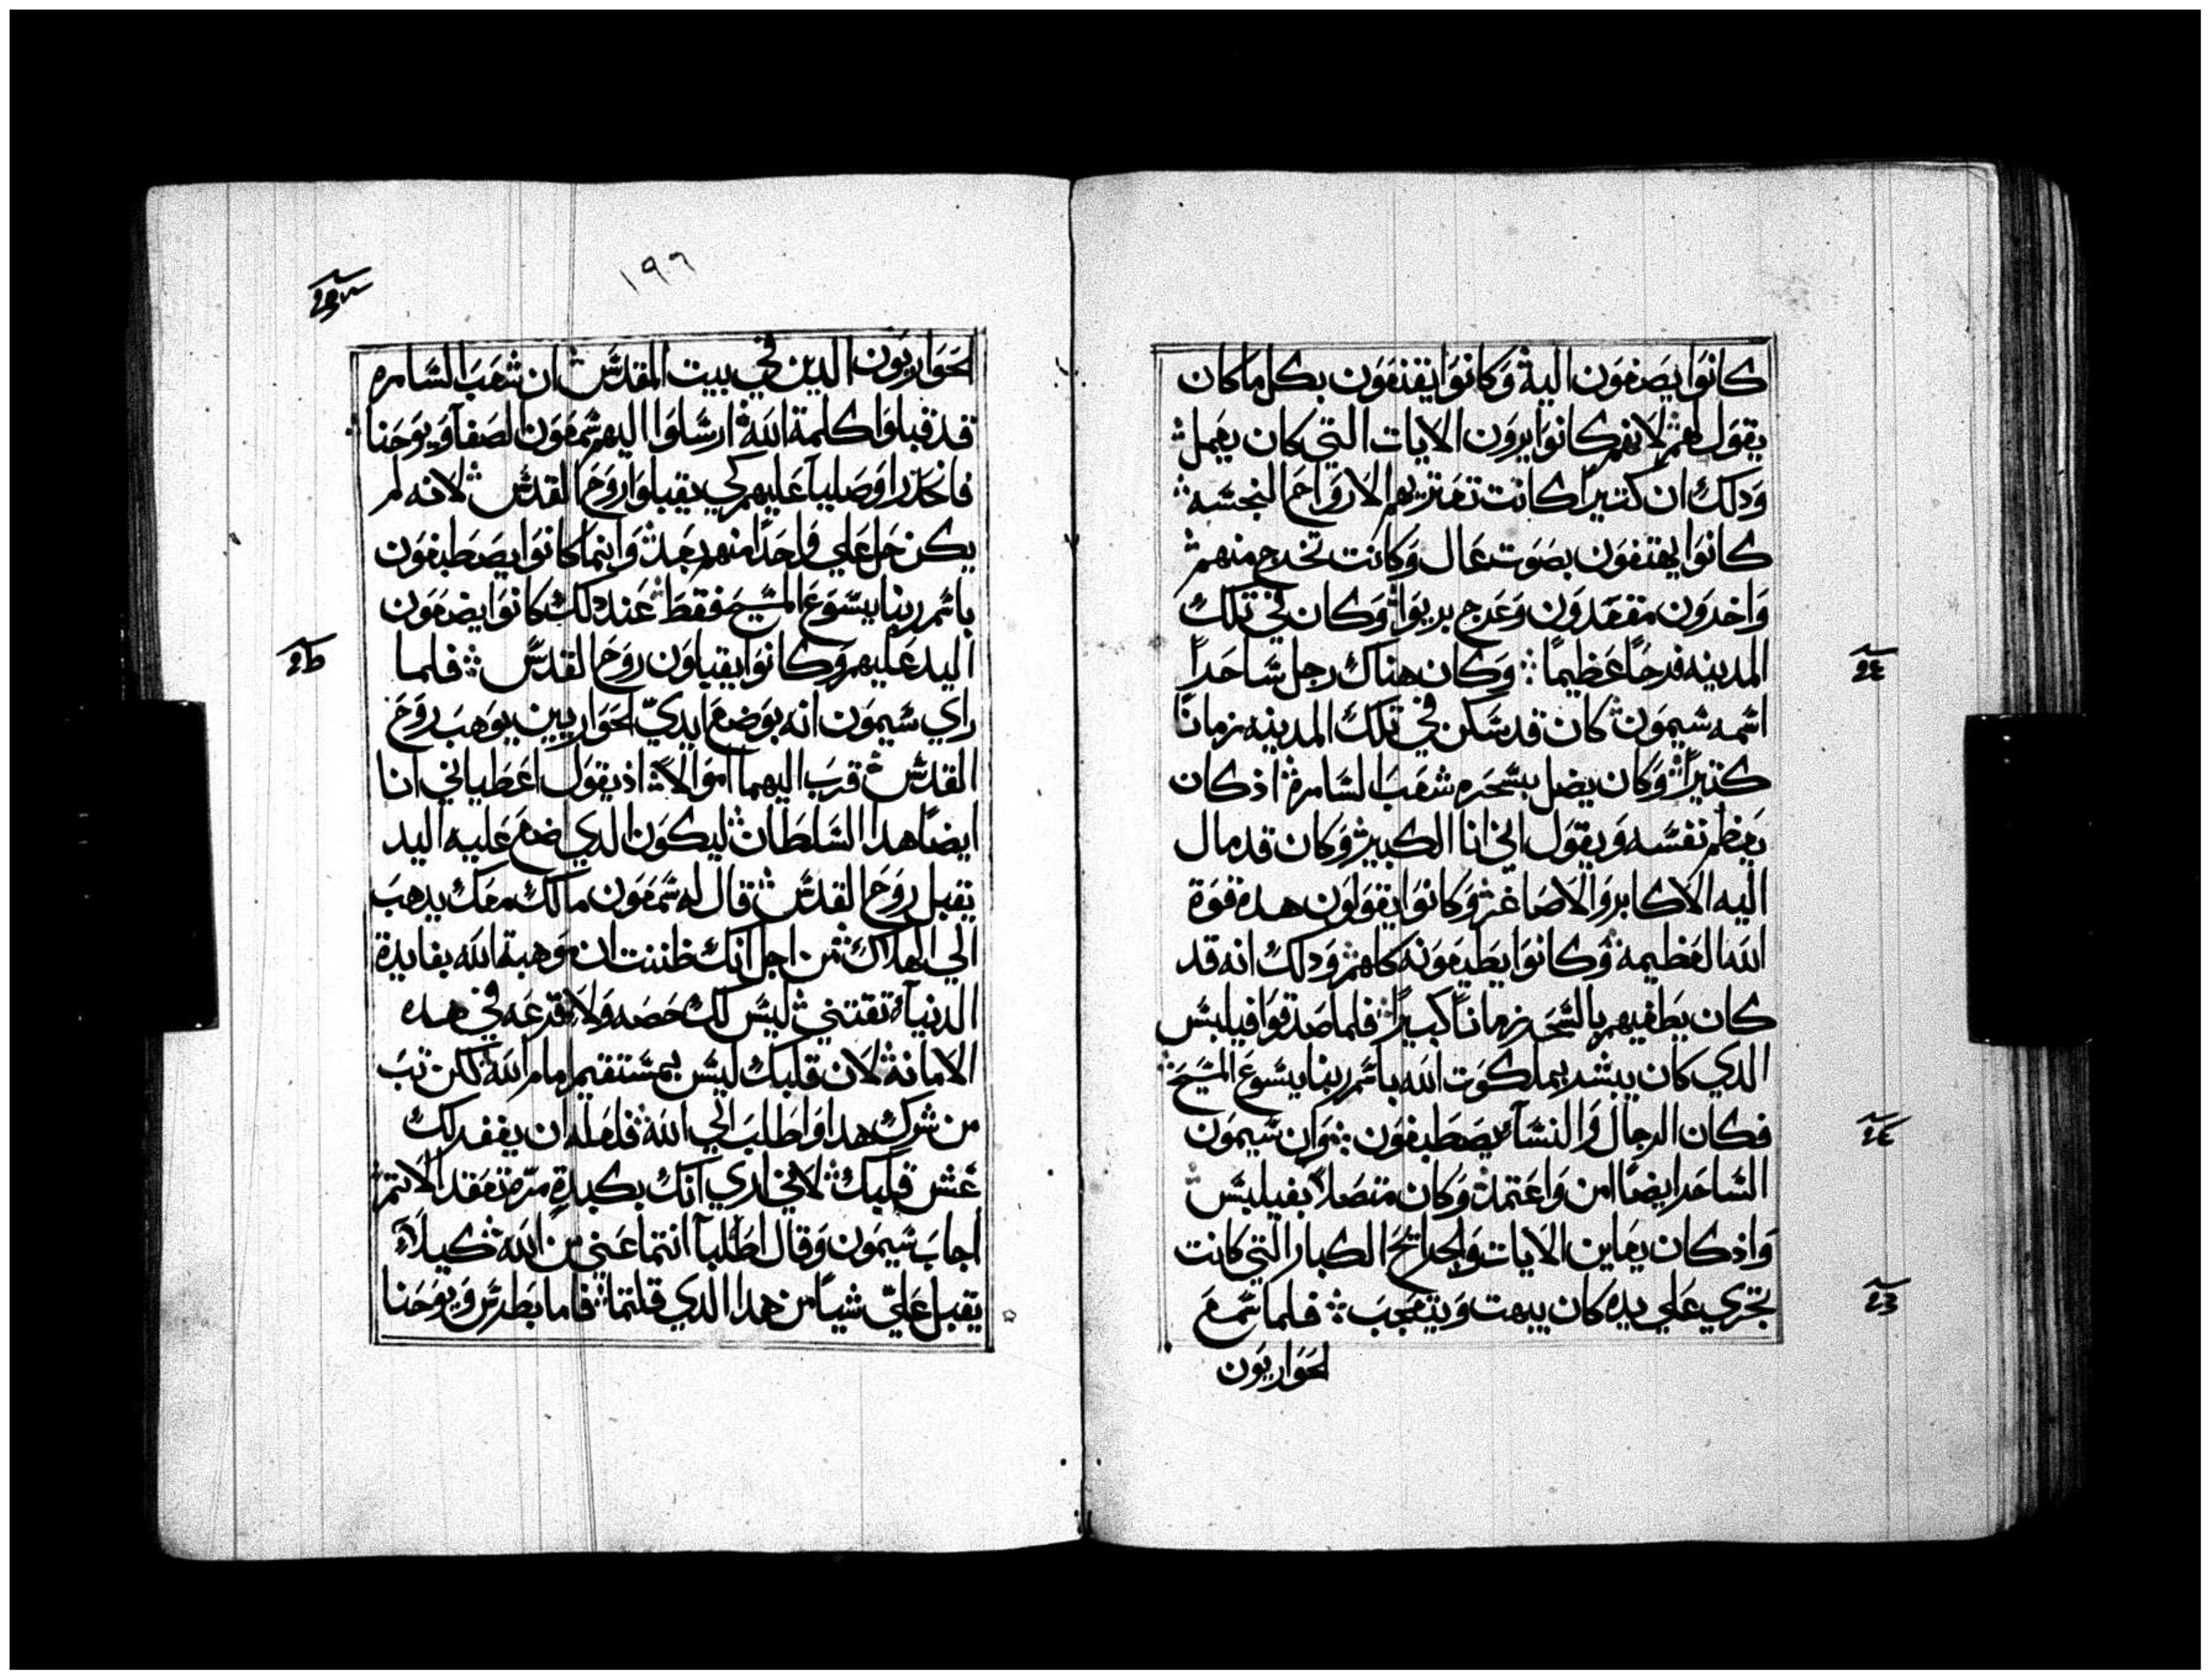 كانوا يصغون اليه وكانوا يقنعون بكل ما كان
يقول لهم لانهم كانوا يرون الايات التي كان يعمل
ودلك ان كتيرا كانت تعتريهم الارواح النجسه
كانوا يهتفون بصوت عال وكانت تخرج منهم
واخرون مقعدون وعرج بريوا وكان في تلك
المدينه فرحا عظيما وكان هناك رجل ساحرا
اسمه سيمون كان قد سكن في تلك المدينه زمانا
كتيرا وكان يضل بسحره شعب السامره اذ كان
يعظم نفسه ويقول اني انا الكبير وكان قد مال
اليه الاكابر والاصاغر وكانوا يقولون هده قوة
الله العظيمه وكانوا يطيعونه كلهم ودلك انه قد
كان يطغيهم بالسحر زمانا كبيرا فلما صدقوا فيلبس
الدي كان يبشر بملكوت الله باسم ربنا يسوع المسيح
فكان الرجال والنسآ يصطبغون وان سيمون
الساحر ايضا امن واعتمد وكان متصلا بفيلبس
واذ كان يعاين الايات والجرايح الكبار التي كانت
تجري علي يده كان يبهت ويتعجب فلما سمع
الحواريون
١٩٦
الحواريون الدين في بيت المقدس ان شعب السامره
قد قبلوا كلمة الله ارسلوا اليهم شمعون الصفا ويوحنا
فانحدرا وصليا عليهم كي يقبلوا روح القدس لانه لم
يكن حل علي واحدا منهم بعد وانما كانوا يصطبغون
باسم ربنا يسوع المسيح فقط عند دلك كانوا يضعون
اليد عليهم وكانوا يقبلون روح القدس فلما
راي سيمون انه بوضع ايدي الحواريين يوهب روح
القدس قرب اليهما اموالا اذ يقول اعطياني انا
ايضا هدا السلطان ليكون الدي اضع عليه اليد
يقبل روح القدس قال له شمعون مالك معك يدهب
الي الهلاك من اجل انك ظننت ان موهبة الله بفايدة
الدنيا تقتني ليس لك حصه ولا قرعه في هده
الامانه لان قلبك ليس بمستقيم امام الله لكن تب
من شرك هدا واطلب الي الله فلعله ان يغفر لك
غش قلبك لاني اري انك بكبدة مرة وعقد الاتم
اجاب سيمون وقال اطلبا انتما عني من الله كيلا
يقبل علي شيا من هدا الدي قلتما فاما بطرس ويوحنا